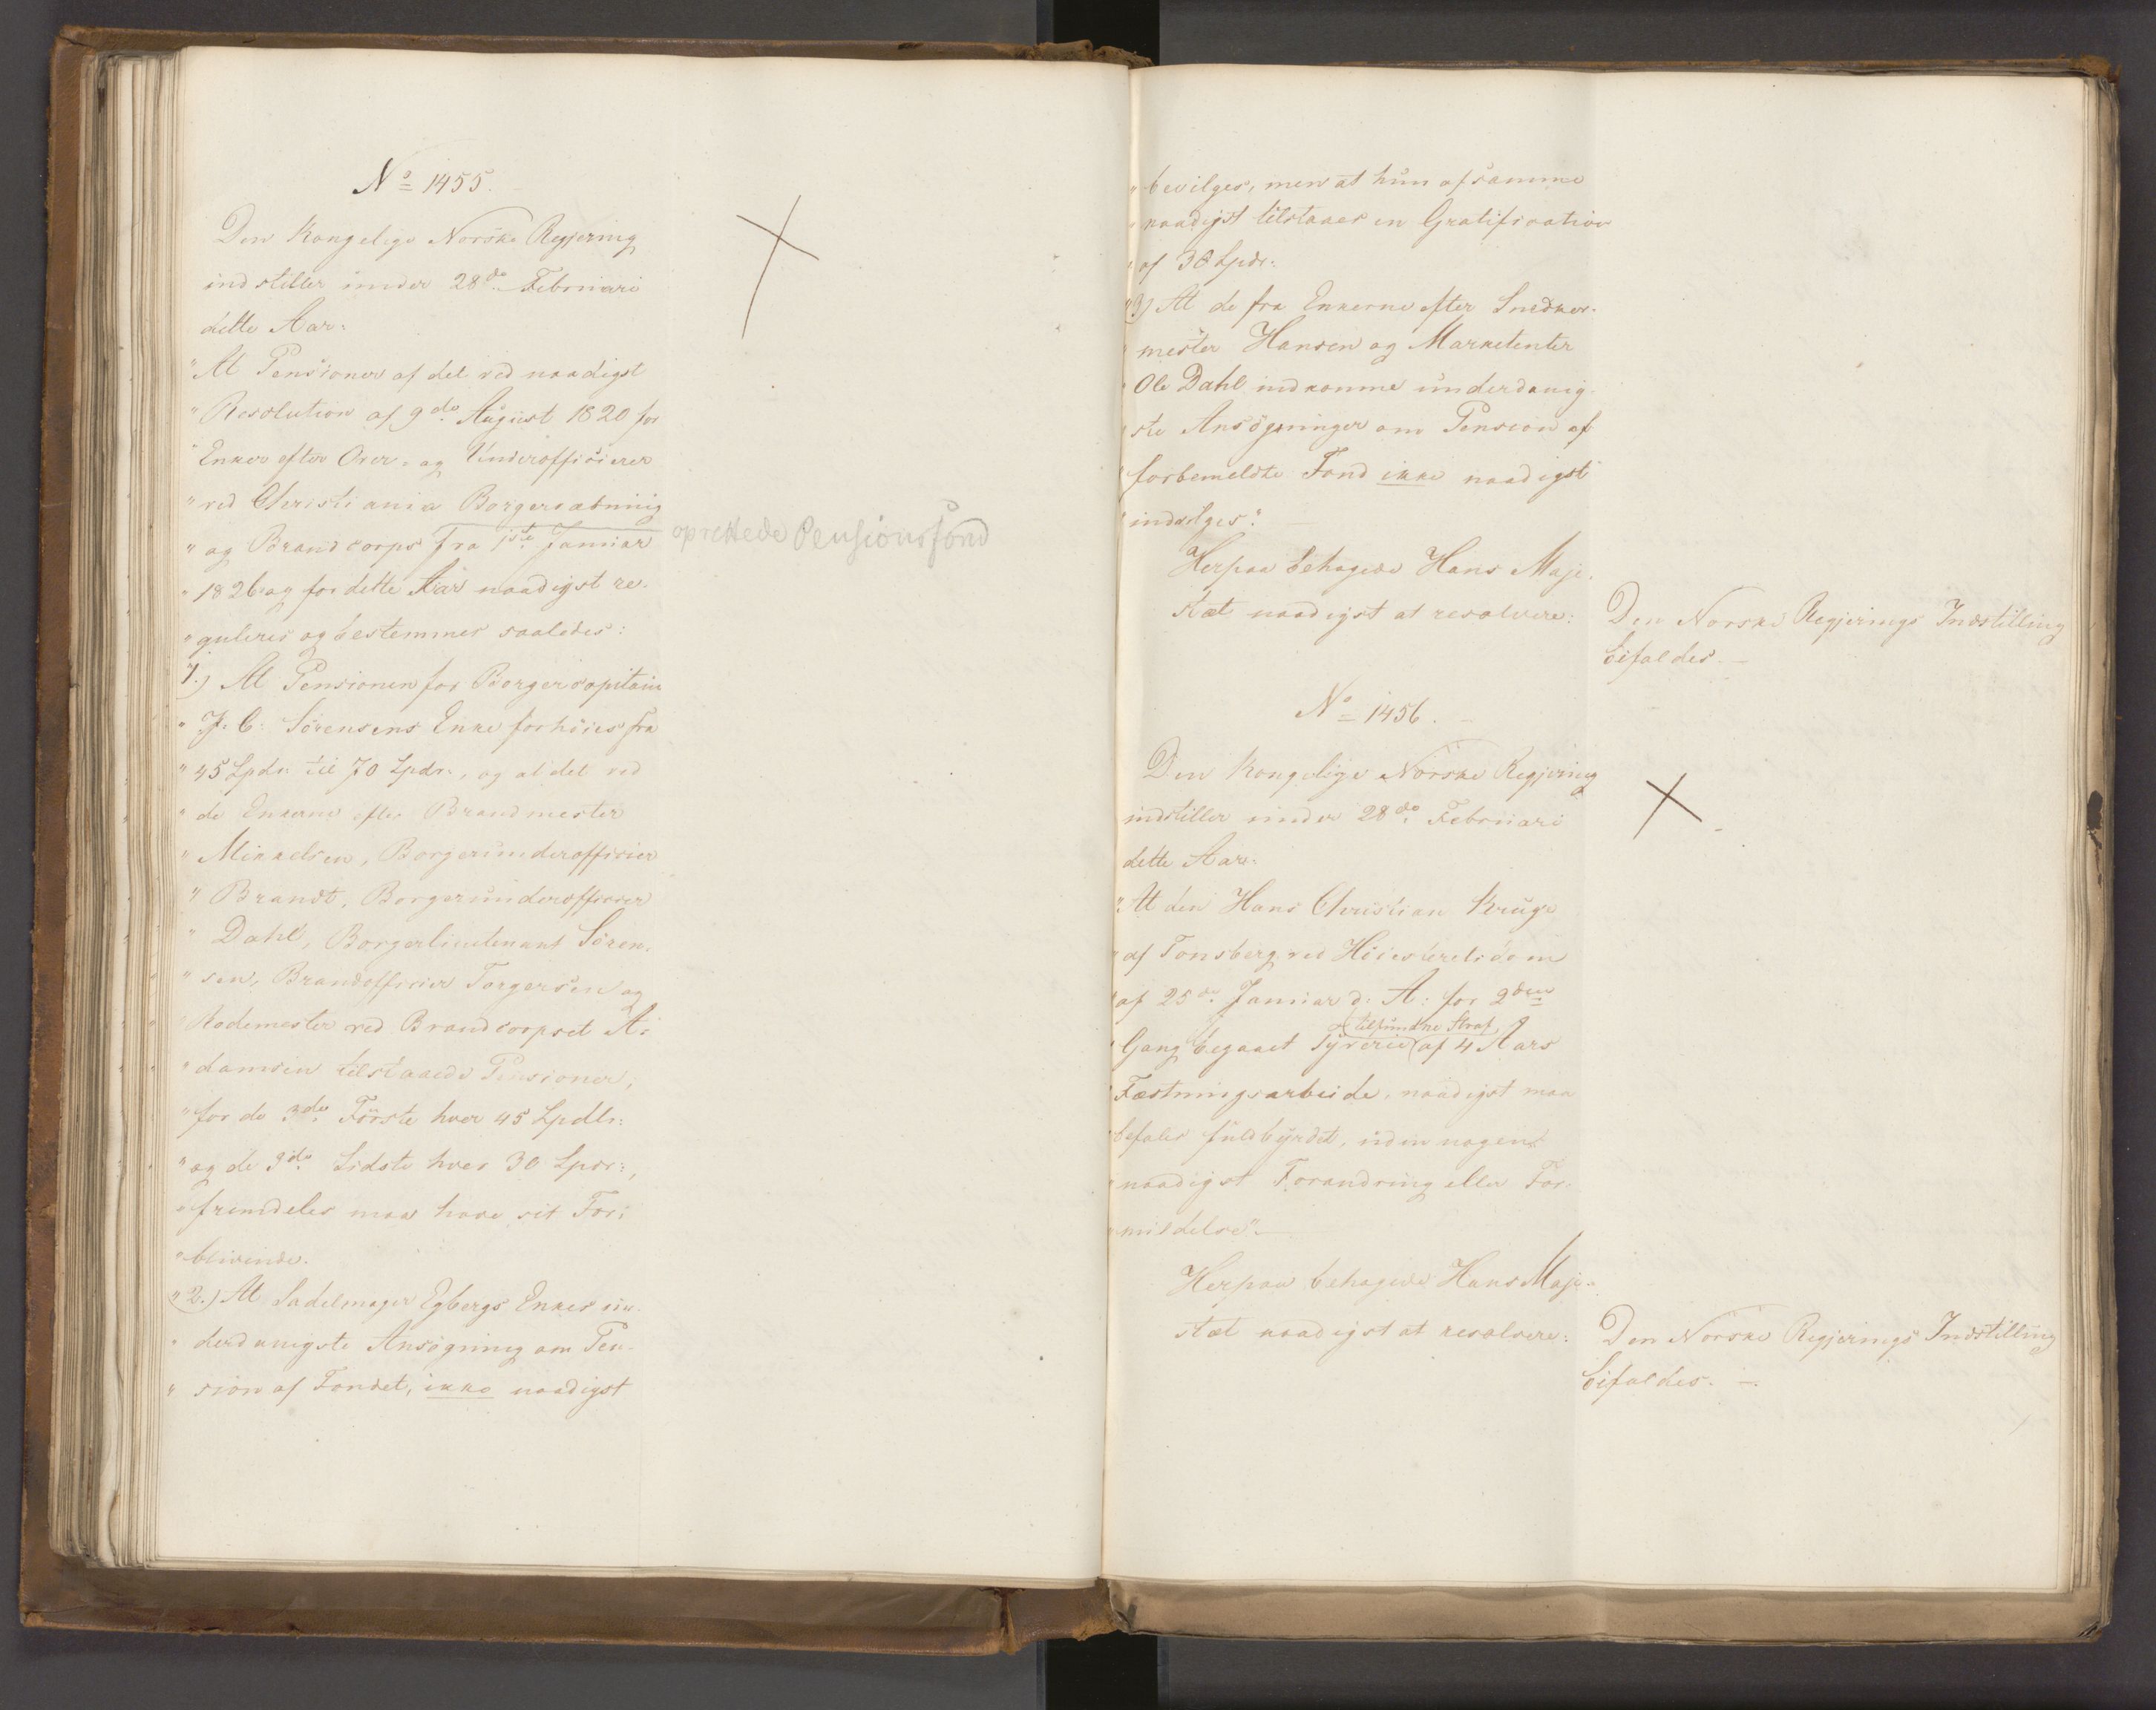 No 1455.
Den Kongelige Norske Regjering
indstiller under 28de Februari
dette Aar:
"At Pensioner af det ved naadigst
"Resolution af 9de August 1820 for
"Enker efter Over- og Underofficierer
"ved Christiania Borgervæbning
"og Brandcorps fra 1ste Januar
oprettede Pensionsfond
"1826 og for dette Aar naadigst re-
"guleres og bestemmes saaledes:
"1.) At Pensionen for Borgercapitain
"J. C. Sörensens Enke forhöies fra
"45 Spdr. til 70 Spdr., og at det ved
"de Enkerne efter Brandmester
"Mikkelsen, Borgerunderofficier
"Brandt, Borgerunderofficier
"Dahl, Borgerlieutenant Sören-
"sen, Brandofficier Torgersen og
"Rodemester ved Brandcorpset A-
"damsen tilstaaede Pensioner,
"for de 3de Förste hver 45 Spdlr:
"og de 3de Sidste hver 30 Spdr:,
"fremdeles maa have sit For-
"blivende.
"2.) At Sadelmager Egbergs Enkes un-
"derdanigste Ansögning om Pen-
"sion af Fondet, ikke naadigst
"bevilges, men at hun af samme
"naadigst tilstaaes en Gratification
"af 30 Spdr:
"3) At de fra Enkerne efter Snedker-
"mester Hansen og Marketenter
"Ole Dahl indkomne underdanig-
"ste Ansögninger om Pension af
"forbemeldte Fond ikke naadigst
"indvilges."
Herpaa behagede Hans Maje-
stæt naadigst at resolvere:
Den Norske Regjerings Indstilling
bifaldes. -
No 1456.
Den Kongelige Norske Regjering
indstiller under 28de Februari
dette Aar:
"At den Hans Christian Kruge
"af Tonsberg ved Höiesteretsdom
"af 25de Januar d: A: for 2den
tilfundne Straf
"Gang begaaet Tyverie af 4 Aars
"Fæstningsarbeide, naadigst maa
"befales fuldbyrdet, uden nogen
"naadigst Forandring eller For-
"mildelse".
Herpaa behagede Hans Maje-
stæt naadigst at resolvere:
Den Norske Regjerings Indstilling
bifaldes. -